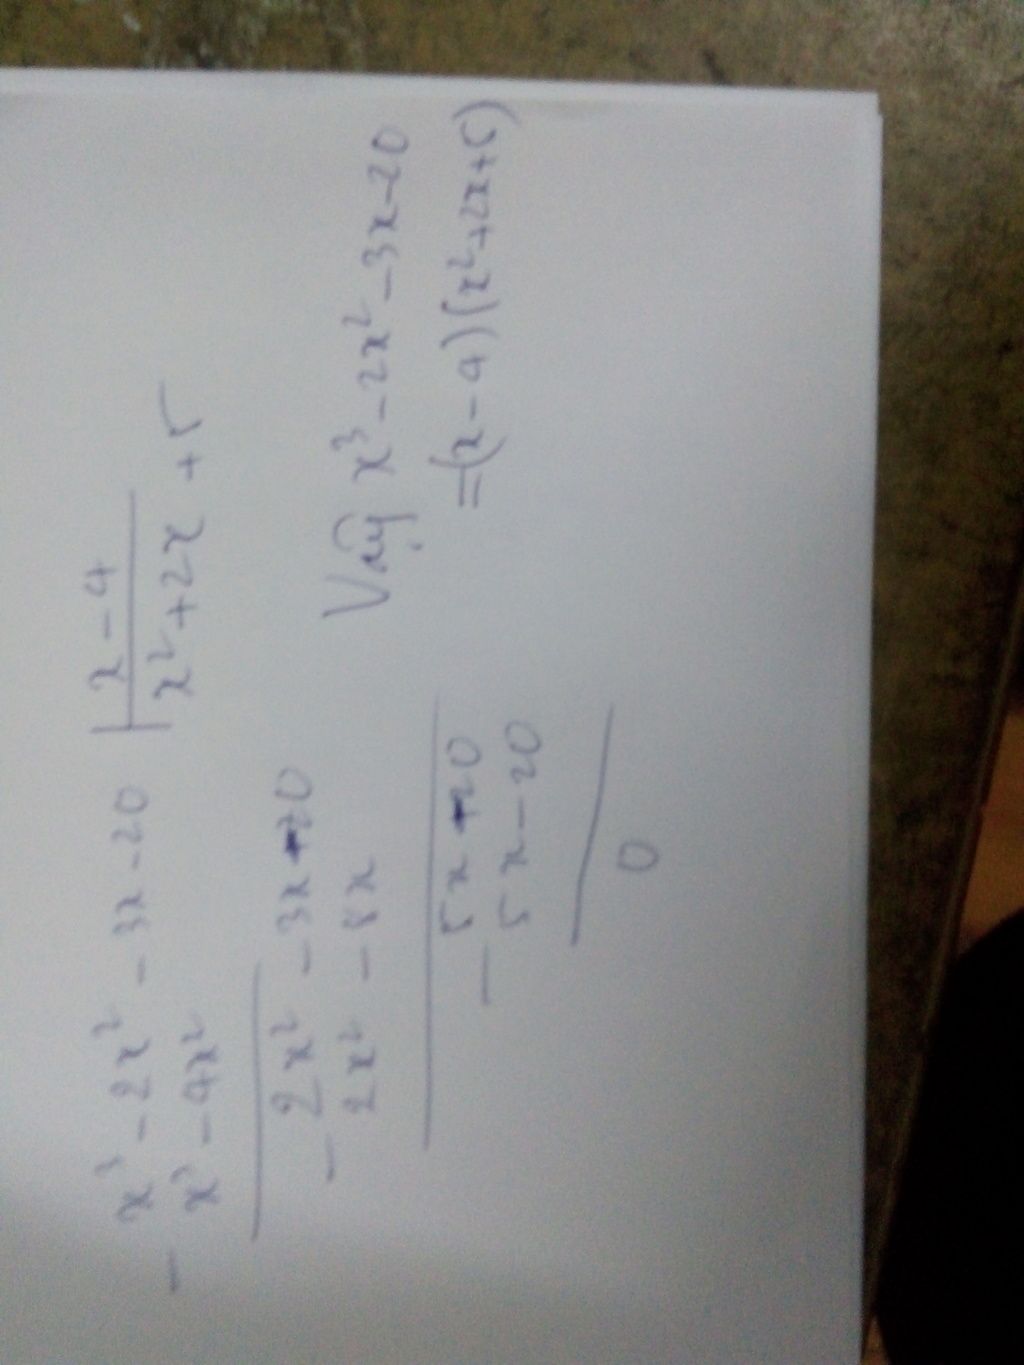 x³ - 2x² - 3x - 20 | x - 4
- x³ - 4x² | x² + 2x + 5
2x² - 3x - 20
- 2x² - 8x
5x - 20
- 5x - 20
0
Vậy x³ - 2x² - 3x - 20
= (x - 4) (x² + 2x + 5)